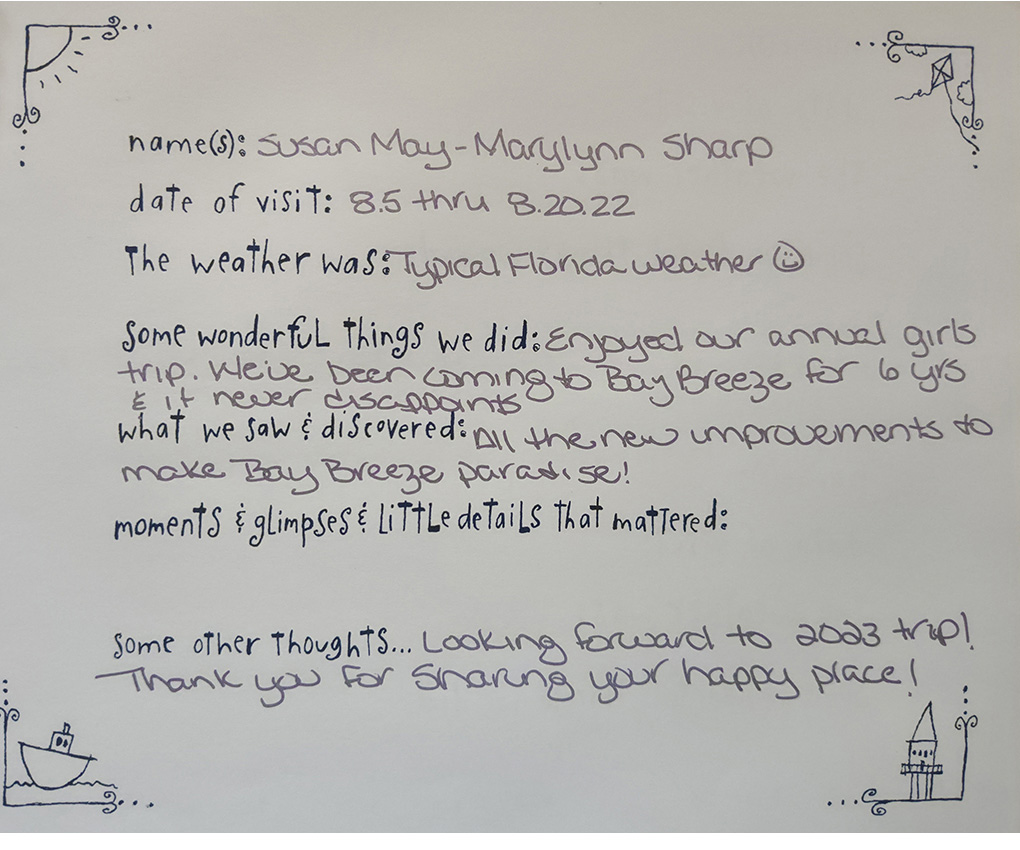 name(s): Susan May-Marylynn Sharp
date of visit: 8.5 thru 8.20.22
The weather was: Typical Florida weather ☺
some wonderful things we did: Enjoyed our annual girls
trip. We've been coming to Bay Breeze for 6 yrs
& it never disappoints
what we saw & discovered: All the new improvements to
make Bay Breeze paradise!
moments & glimpses & little details that mattered:
some other thoughts... Looking forward to 2023 trip!
Thank you for sharing your happy place!